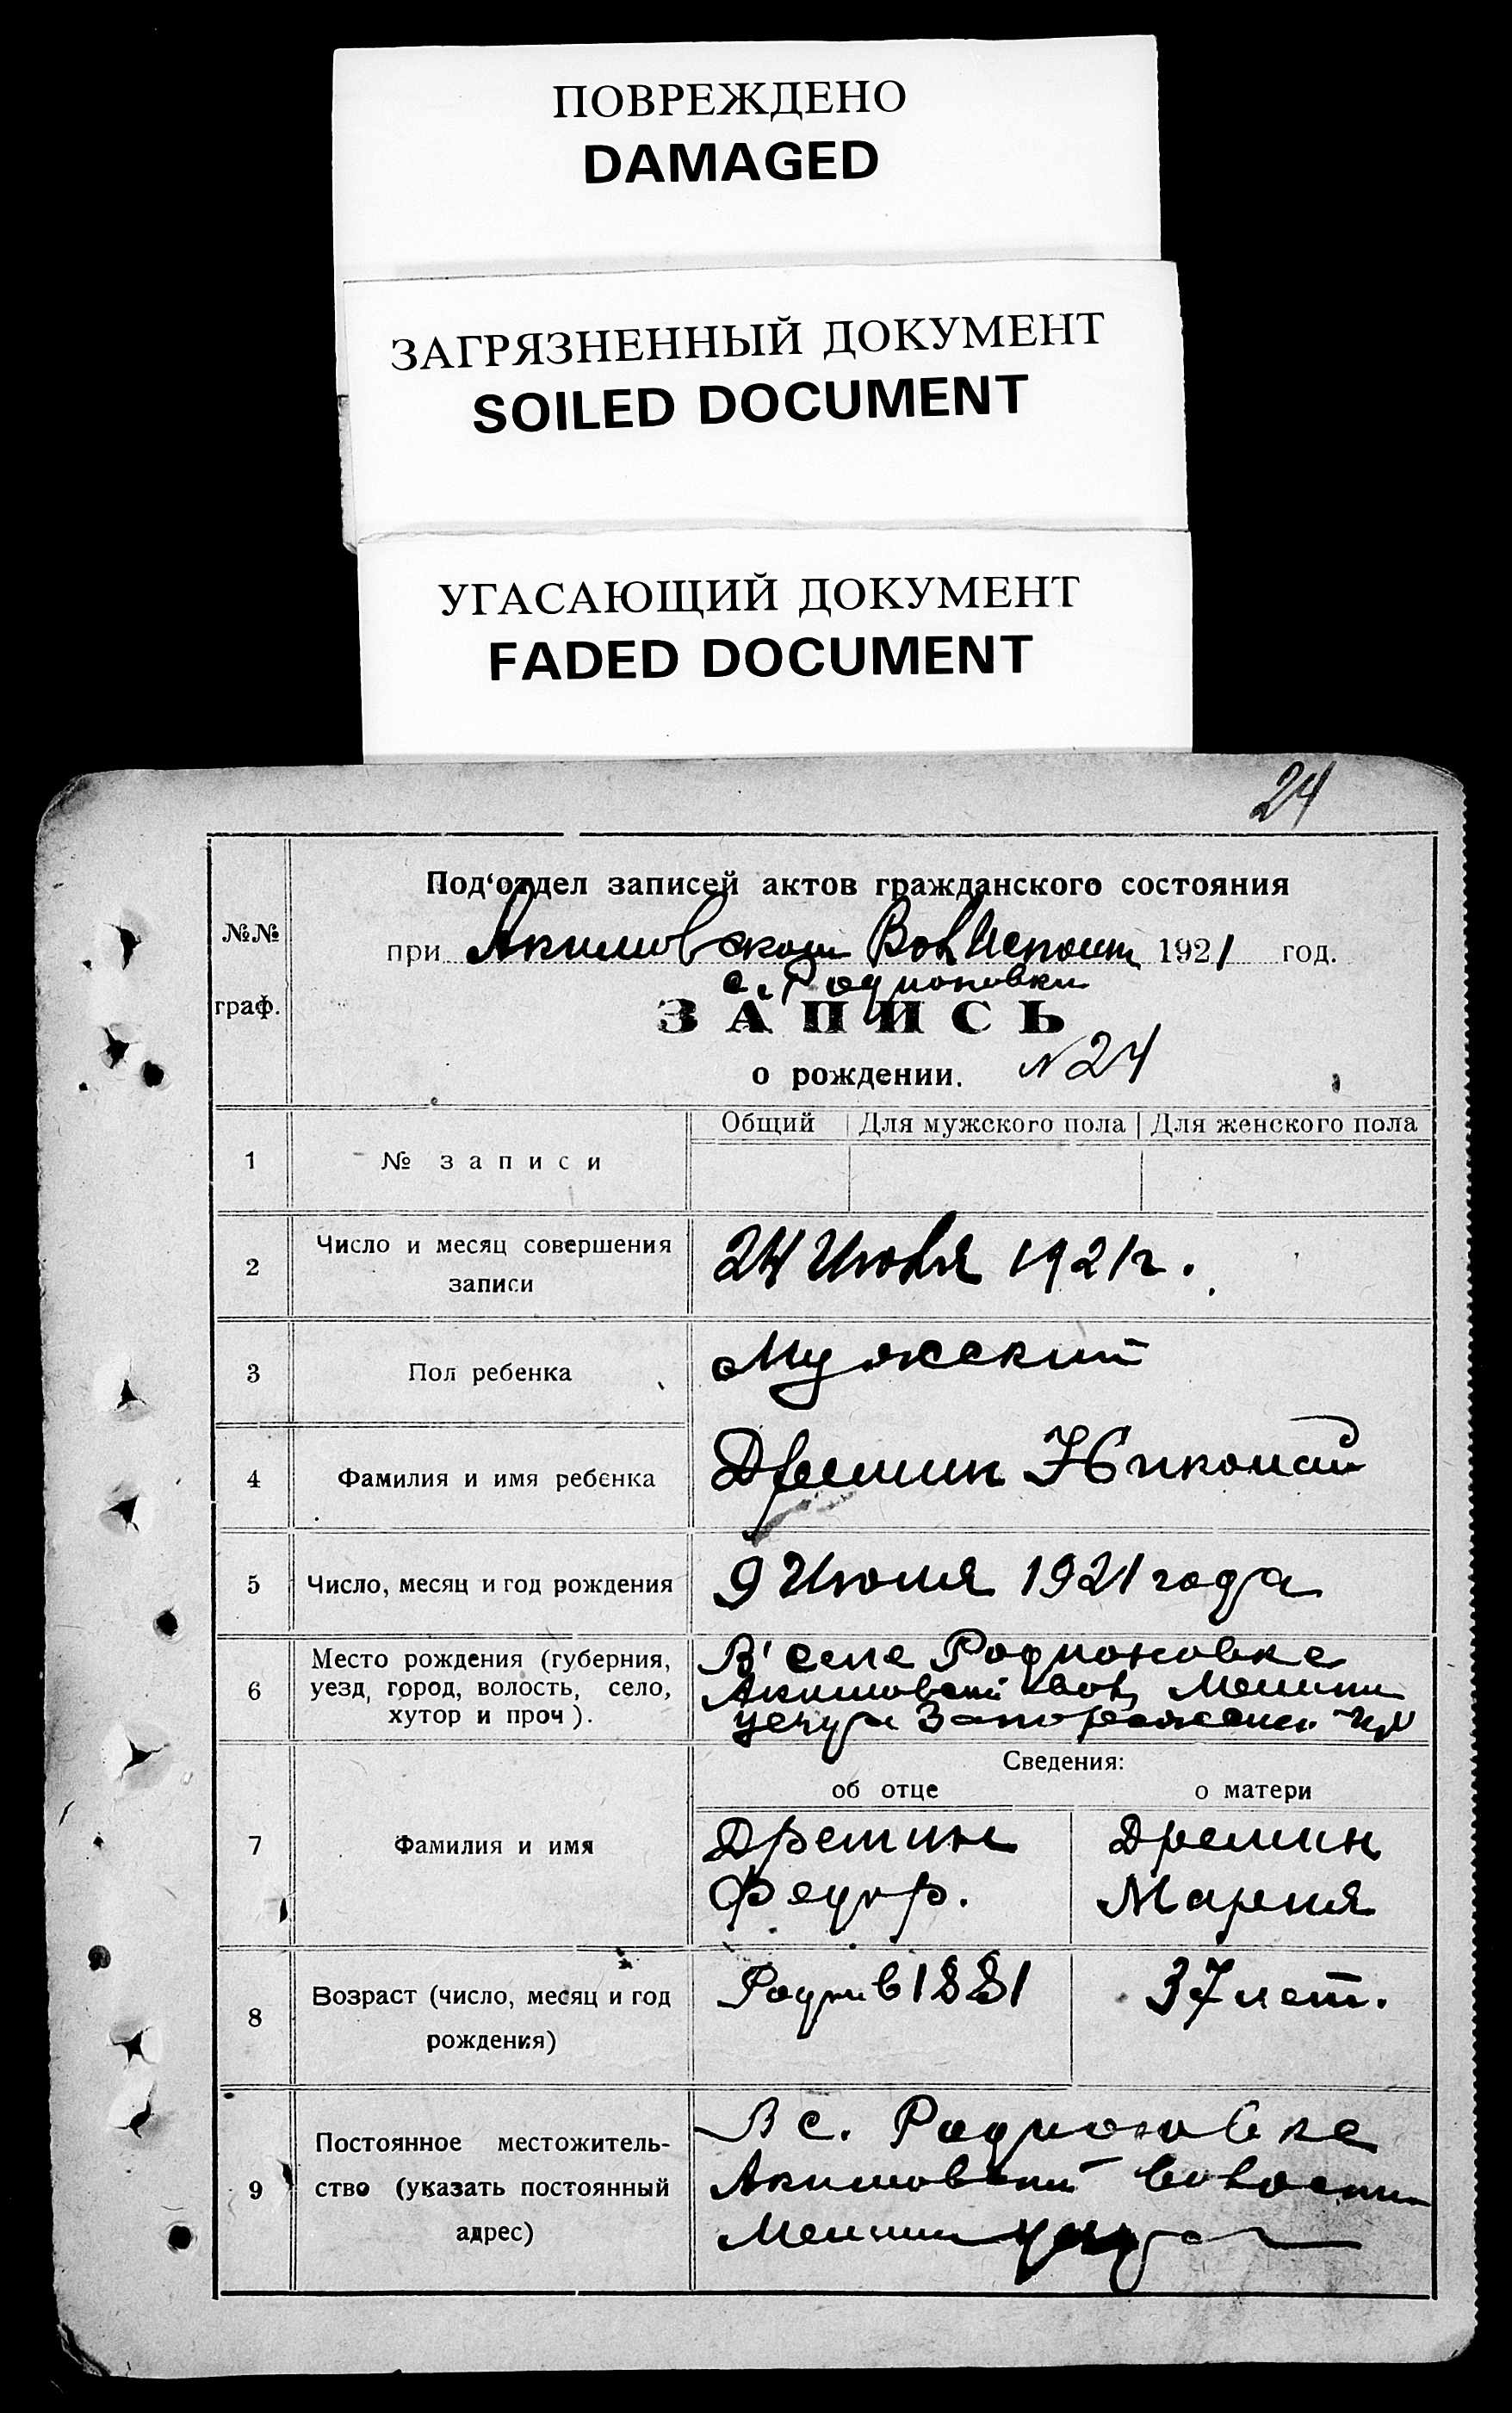 ПОВРЕЖДЕНО
DAMAGED
ЗАГРЯЗНЕННЫЙ ДОКУМЕНТ
SOILED DOCUMENT
УГАСАЮЩИЙ ДОКУМЕНТ
FADED DOCUMENT
24
№№ граф.
Под'отдел записей актов гражданского состояния
при Акимовском Вол 1921 год.
с. Родионовки
ЗАПИСЬ
о рождении. N 24
Общий Для мужского пола Для женского пола
1 № записи
2 Число и месяц совершения записи
24 Июля 1921 г.
3 Пол ребенка
Мужский
4 Фамилия и имя ребенка
Дремин Николай
5 Число, месяц и год рождения
9 Июля 1921 года
6 Место рождения (губерния, уезд, город, волость, село, хутор и проч).
В селе Родионовке
Акимовской вол Мелит
уезда
Сведения:
об отце о матери
7 Фамилия и имя
Дремин Дремин
Федор. Мария
8 Возраст (число, месяц и год рождения)
в 1881 37 лет.
9 Постоянное местожительство (указать постоянный адрес)
В с. Родионовке
Акимовской волости
уезда